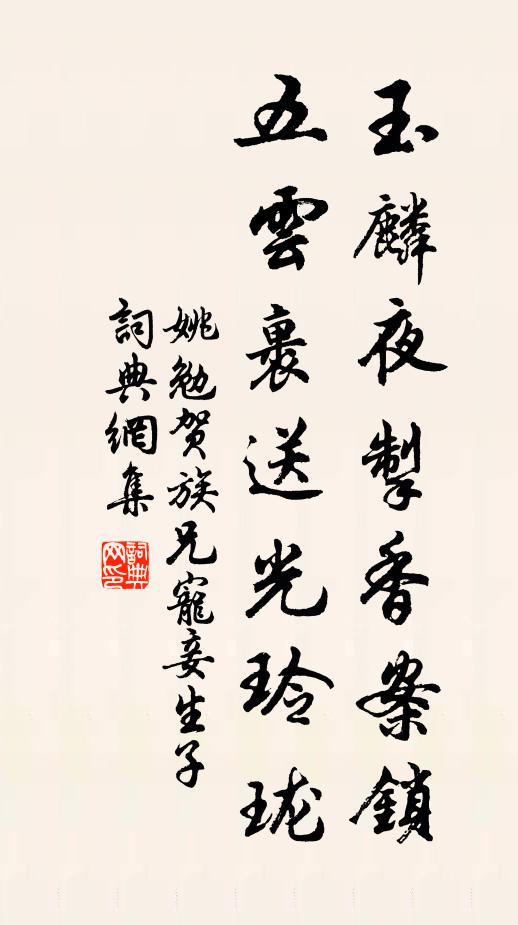 玉麟夜掣香案鎖
五雲裹送光玲珑
姚勉贺族兄寵妾生子
詞典網集
詞典网印